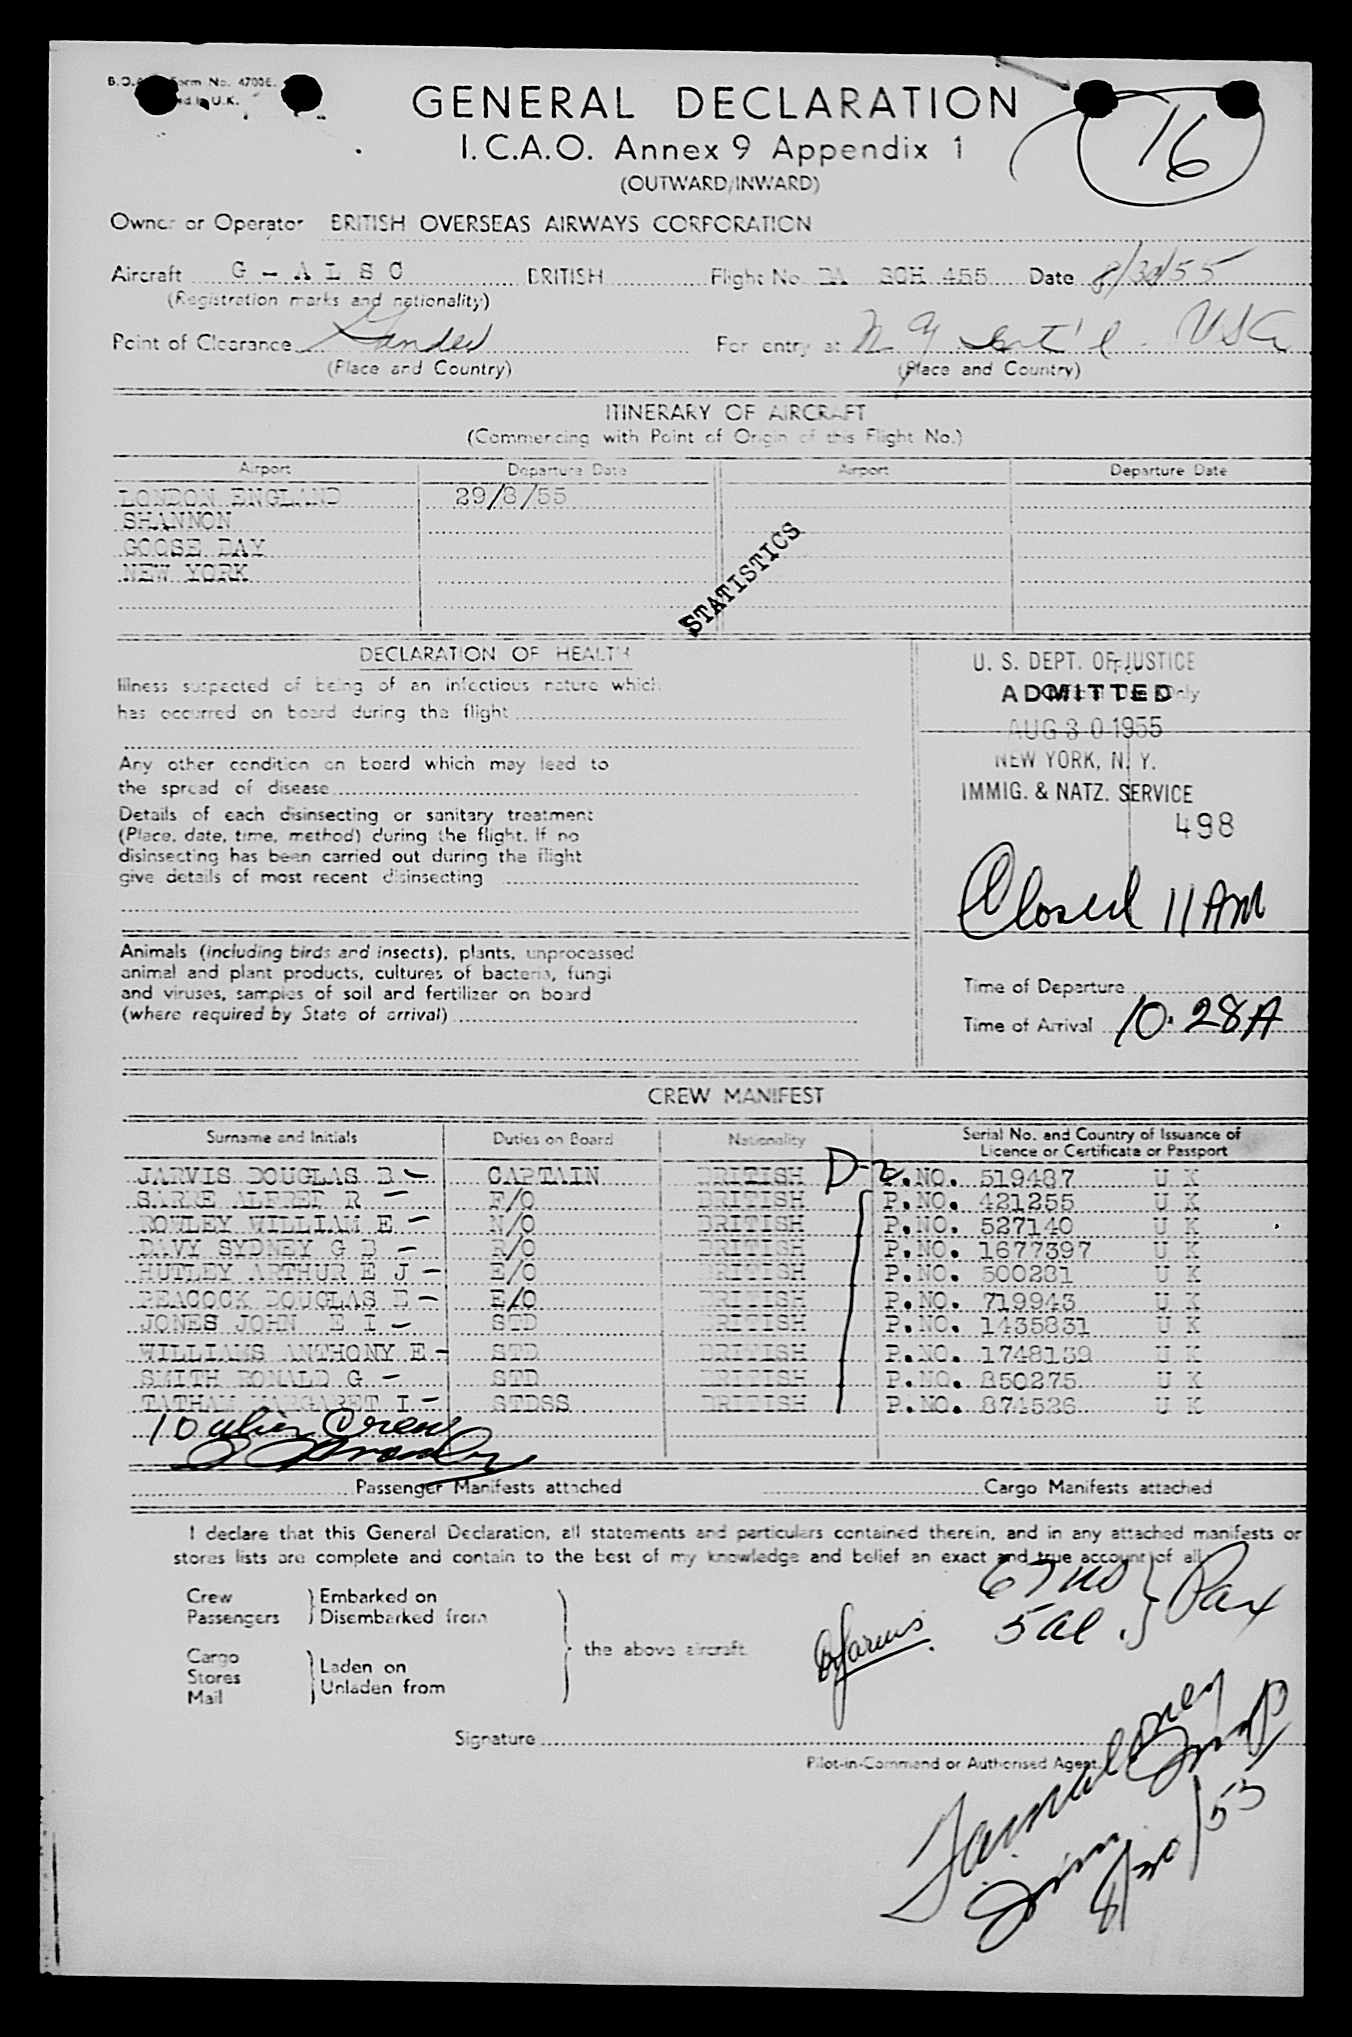 Form No. 4700E.
U.K.
16
GENERAL DECLARATION
I.C.A.O. Annex 9 Appendix 1
(OUTWARD/INWARD)
Owner or Operator BRITISH OVERSEAS AIRWAYS CORPORATION
Aircraft G - A L S C BRITISH Flight No. BA SCH 455 Date 8/30/55
(Registration marks and nationality)
Point of Clearance Gander For entry at N Y Int'l. USA
(Place and Country) (Place and Country)
ITINERARY OF AIRCRAFT
(Commencing with Point of Origin of this Flight No.)
Airport Departure Date Airport Departure Date
LONDON ENGLAND 29/8/55
SHANNON
GOOSE BAY
NEW YORK
STATISTICS
DECLARATION OF HEALTH
Illness suspected of being of an infectious nature which
has occurred on board during the flight
Any other condition on board which may lead to
the spread of disease
Details of each disinsecting or sanitary treatment
(Place, date, time, method) during the flight. If no
disinsecting has been carried out during the flight
give details of most recent disinsecting
Animals (including birds and insects), plants, unprocessed
animal and plant products, cultures of bacteria, fungi
and viruses, samples of soil and fertilizer on board
(where required by State of arrival)
U. S. DEPT. OF JUSTICE
ADMITTED Only
AUG 30 1955
NEW YORK, N. Y.
IMMIG. & NATZ. SERVICE
498
Closed 11 AM
Time of Departure
Time of Arrival 10.28A
CREW MANIFEST
Surname and Initials Duties on Board Nationality Serial No. and Country of Issuance of
Licence or Certificate or Passport
JARVIS DOUGLAS B - CAPTAIN BRITISH D-2 P.NO. 519487 U K
SARRE ALFRED R - F/O BRITISH P.NO. 421255 U K
ROWLEY WILLIAM E - N/O BRITISH P.NO. 527140 U K
DAVY SYDNEY G B - R/O BRITISH P.NO. 1677397 U K
HUTLEY ARTHUR E J - E/O BRITISH P.NO. 500281 U K
PEACOCK DOUGLAS E - E/O BRITISH P.NO. 719943 U K
JONES JOHN E I - STD BRITISH P.NO. 1435831 U K
WILLIAMS ANTHONY E - STD BRITISH P.NO. 1748139 U K
SMITH RONALD G - STD BRITISH P.NO. 850275 U K
TATHAM MARGARET I - STDSS BRITISH P.NO. 874526 U K
10 alien Crew
Passenger Manifests attached Cargo Manifests attached
I declare that this General Declaration, all statements and particulars contained therein, and in any attached manifests or
stores lists are complete and contain to the best of my knowledge and belief an exact and true account of all
Crew Embarked on
Passengers Disembarked from
Cargo
Stores Laden on
Mail Unladen from
the above aircraft.
67 US
5 al. Pax
Signature
Pilot-in-Command or Authorised Agent.
8/30/55